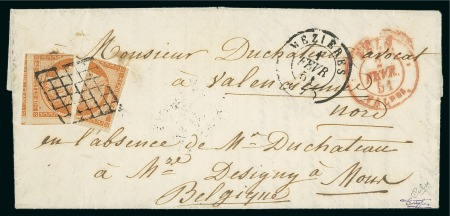 Monsieur Duchateau avocat
à Valenciennes
Nord
en l'absence de Mr Duchateau
à Mr Designy à Mons
Belgique
MEZIERES
FEVR
51
FEVR.
51